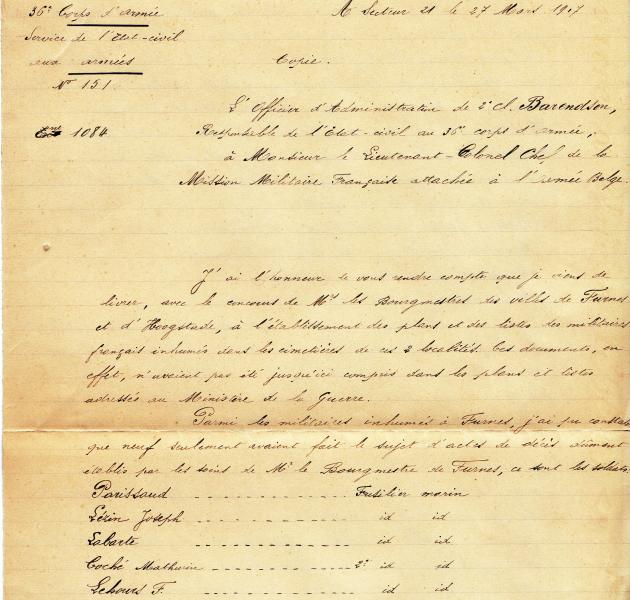 36e Corps d'armée
A Secteur 21 le 27 Mars 1917
Service de l'Etat-civil
aux armées
Copie.
No 151
L'Officier d'Administration de 2e cl. Barendson,
1084
Responsable de l'Etat-civil au 36e corps d'armée,
à Monsieur le Lieutenant-Colonel Chef de la
Mission Militaire Française attachée à l'armée Belge.
J'ai l'honneur de vous rendre compte que je viens de
livrer, avec le concours de Mrs les Bourgmestres des villes de Furnes
et d'Hoogstade, à l'établissement des plans et des listes des militaires
français inhumés dans les cimetières de ces 2 localités. Ces documents, en
effet, n'avaient pas été jusqu'ici compris dans les plans et listes
adressés au Ministère de la Guerre.
Parmi les militaires inhumés à Furnes, j'ai pu constate
que neuf seulement avaient fait le sujet d'actes de décès dûment
établis par les soins de Mr le Bourgmestre de Furnes, ce sont les soldats
Parissaud - - - - - - - - - - - Fusilier marin
Lézin Joseph - - - - - - - - - - - id id
Labarte - - - - - - - - - - - id id
Coché Mathurin - - - - - - - - - - - 2e id id
Lehours F. - - - - - - - - - - - id id